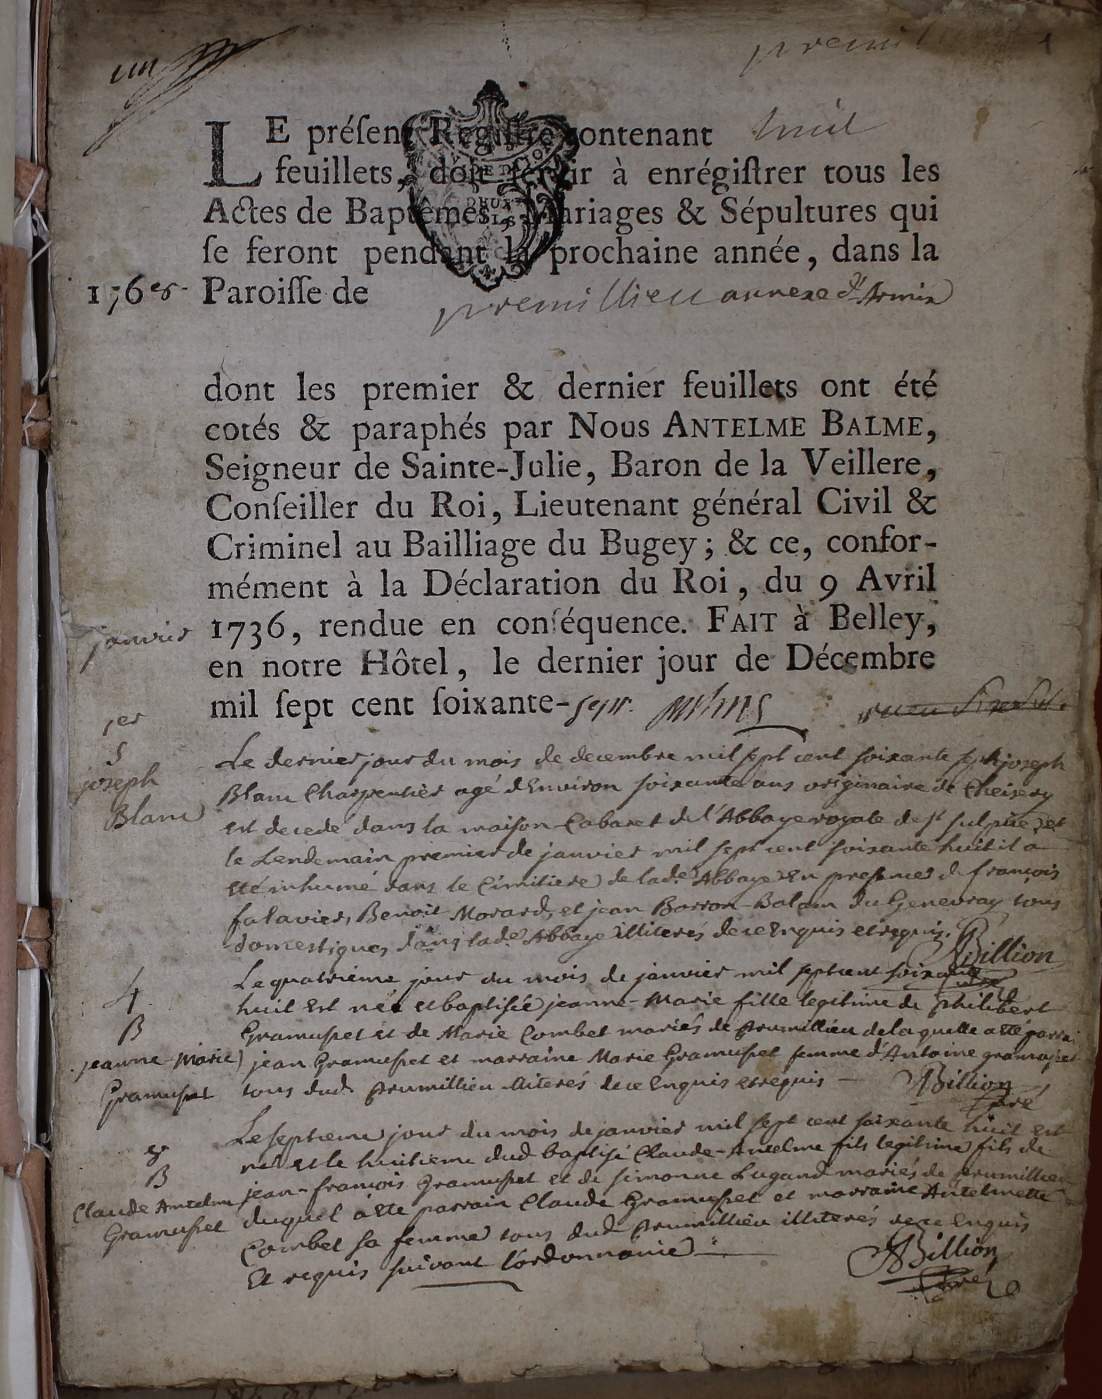 un
premillieu 1
LE préſent Regiſtre contenant huit
feuillets, doit ſervir à enrégiſtrer tous les
Actes de Baptêmes, Mariages & Sépultures qui
ſe feront pendant la prochaine année, dans la
Paroiſſe de premillieu annexe d'Armix
dont les premier & dernier feuillets ont été
cotés & paraphés par NOUS ANTELME BALME,
Seigneur de Sainte-Julie, Baron de la Veillere,
Conſeiller du Roi, Lieutenant général Civil &
Criminel au Bailliage du Bugey; & ce, confor-
mément à la Déclaration du Roi, du 9 Avril
1736, rendue en conſéquence. FAIT à Belley,
en notre Hôtel, le dernier jour de Décembre
mil ſept cent ſoixante-sept.
janvier
1er
S
joseph
Blanc
Le dernier jour du mois de decembre mil sept cent soixante sept joseph
Blanc Charpentier agé d'Environ soixante ans originaire de Cheisery
est decedé dans la maison Cabaret de l'Abbaye royale de st sulpice et
le Lendemain premier de janvier mil sept cent soixante huit il a
eté inhumé dans le Cimitiere de lade Abbaye En presence de françois
falavier, Benoit Morard, et jean Barron Balam du Genevray tous
domestiques dans lade Abbaye illiterés de ce Enquis et requis. Billion
4
B
jeanne-Marie
Gramuset
Le quatrieme jour du mois de janvier mil sept cent soixante
huit Est née et baptisée jeanne-Marie fille legitime de philibert
Gramuset et de Marie Combet mariés de prumillieu de laquelle a eté parrain
jean Gramuset et marraine Marie Gramuset femme d'Antoine gramuset
tous dud. prumillieu illiterés de ce Enquis et requis — Billion
curé
8
B
Claude Antelme
Gramuset
Le septieme jour du mois de janvier mil sept cent soixante huit est
né et le huitieme dud baptisé Claude-Antelme fils legitime fils de
jean-françois Gramuset et de simonne Lugand mariés de prumillieu
duquel a ete parrain Claude Gramuset et marraine Antelmette
Combet sa femme tous dud prumillieu illiterés de ce Enquis
Et requis suivant l'ordonnance Billion
curé